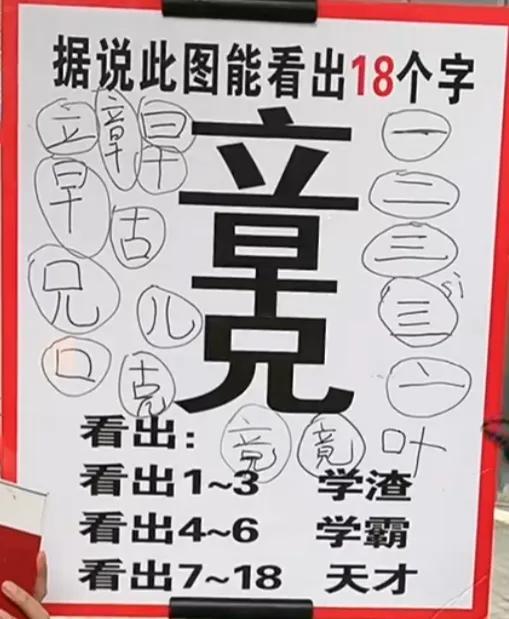 据说此图能看出18个字
立 章 日 一
十
早 古 二
立
早
兄
三
兄 儿 三
si
口 克 亠
竞 竟 叶
看出:
看出1~3 学渣
看出4~6 学霸
看出7~18 天才